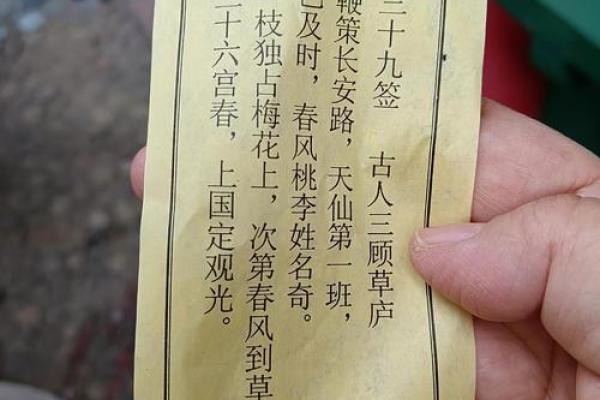 三十九签 古人三顾草庐
鞭策长安路，天仙第一班，
及时，春风桃李姓名奇。
枝独占梅花上，次第春风到草
十六宫春，上国定观光。